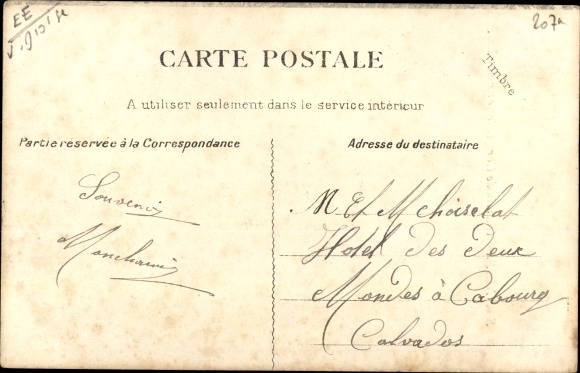 EE
207a
CARTE POSTALE
Timbre
A utiliser seulement dans le service intérieur
Partie réservée à la Correspondance
Adresse du destinataire
Souvenir
M Et M Choiselat
Hotel des deux
Mondes à Cabourg
Calvados